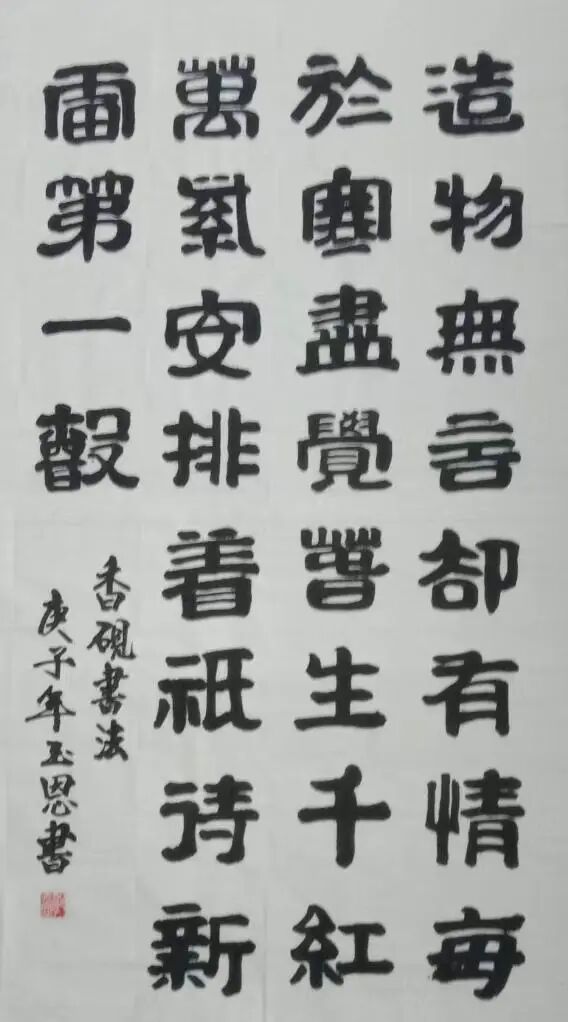 造物無言却有情每
於寒盡覺春生千紅
萬紫安排着祇待新
雷第一聲
香硯書法
庚子年玉恩書